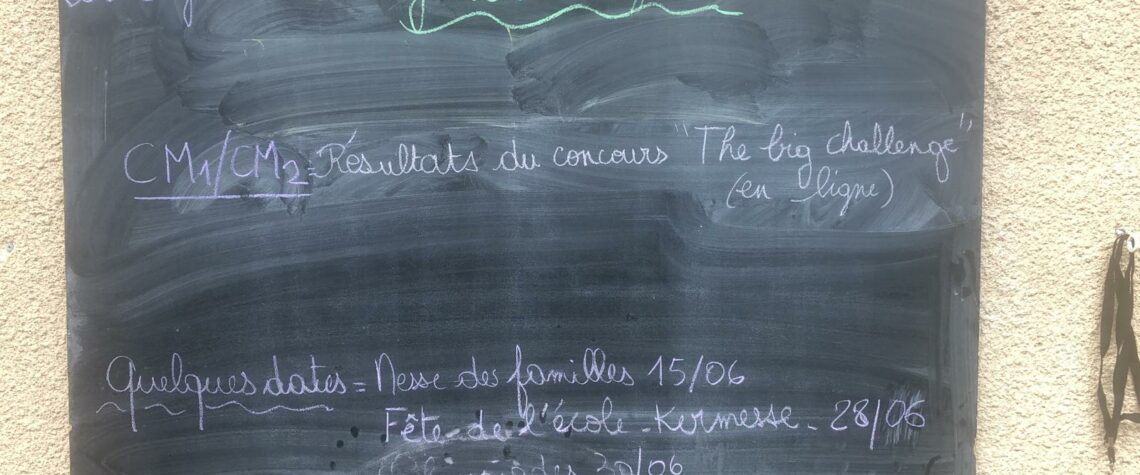 CM1/CM2 = Résultats du concours "The big challenge"
(en ligne)
Quelques dates = Messe des familles 15/06
Fête de l'école - Kermesse - 28/06
30/06